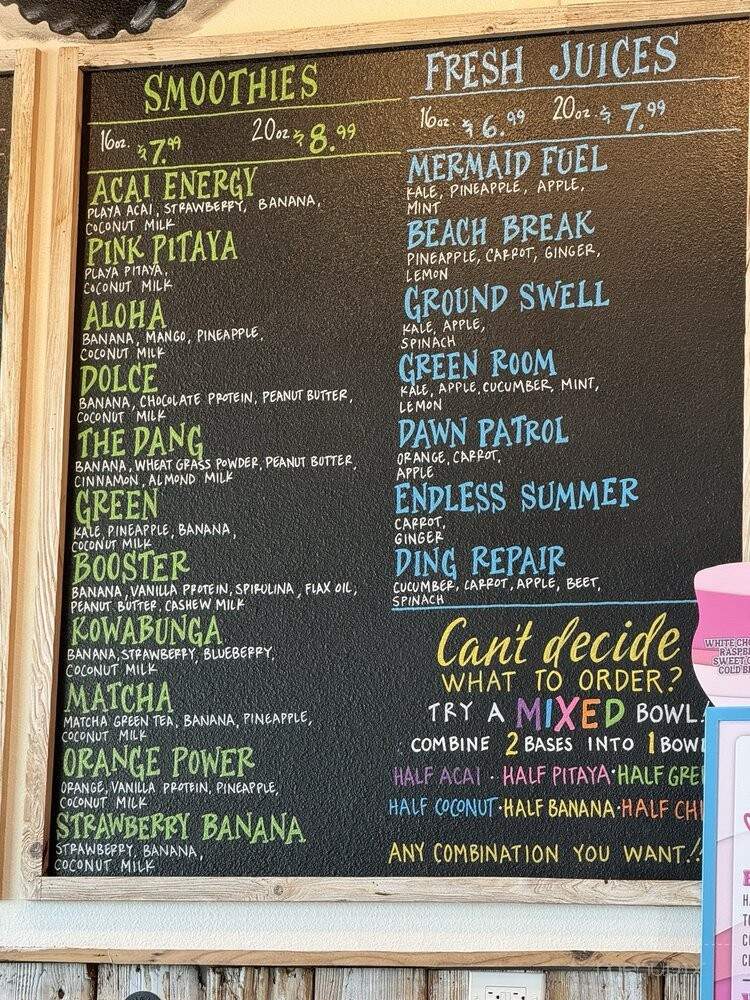 SMOOTHIES
16oz. $7.99 20oz $8.99
ACAI ENERGY
PLAYA ACAI, STRAWBERRY, BANANA,
COCONUT MILK
PINK PITAYA
PLAYA PITAYA,
COCONUT MILK
ALOHA
BANANA, MANGO, PINEAPPLE,
COCONUT MILK
DOLCE
BANANA, CHOCOLATE PROTEIN, PEANUT BUTTER,
COCONUT MILK
THE DANG
BANANA, WHEAT GRASS POWDER, PEANUT BUTTER,
CINNAMON, ALMOND MILK
GREEN
KALE, PINEAPPLE, BANANA,
COCONUT MILK
BOOSTER
BANANA, VANILLA PROTEIN, SPIRULINA, FLAX OIL,
PEANUT BUTTER, CASHEW MILK
KOWABUNGA
BANANA, STRAWBERRY, BLUEBERRY,
COCONUT MILK
MATCHA
MATCHA GREEN TEA, BANANA, PINEAPPLE,
COCONUT MILK
ORANGE POWER
ORANGE, VANILLA PROTEIN, PINEAPPLE,
COCONUT MILK
STRAWBERRY BANANA
STRAWBERRY, BANANA,
COCONUT MILK
FRESH JUICES
16oz. $6.99 20oz $7.99
MERMAID FUEL
KALE, PINEAPPLE, APPLE,
MINT
BEACH BREAK
PINEAPPLE, CARROT, GINGER,
LEMON
GROUND SWELL
KALE, APPLE,
SPINACH
GREEN ROOM
KALE, APPLE, CUCUMBER, MINT,
LEMON
DAWN PATROL
ORANGE, CARROT,
APPLE
ENDLESS SUMMER
CARROT,
GINGER
DING REPAIR
CUCUMBER, CARROT, APPLE, BEET,
SPINACH
Can't decide
WHAT TO ORDER?
TRY A MIXED BOWL.
COMBINE 2 BASES INTO 1 BOWL
HALF ACAI · HALF PITAYA · HALF GREE
HALF COCONUT · HALF BANANA · HALF CHI
ANY COMBINATION YOU WANT.!!
WHITE CHO
RASPBE
SWEET C
COLD B